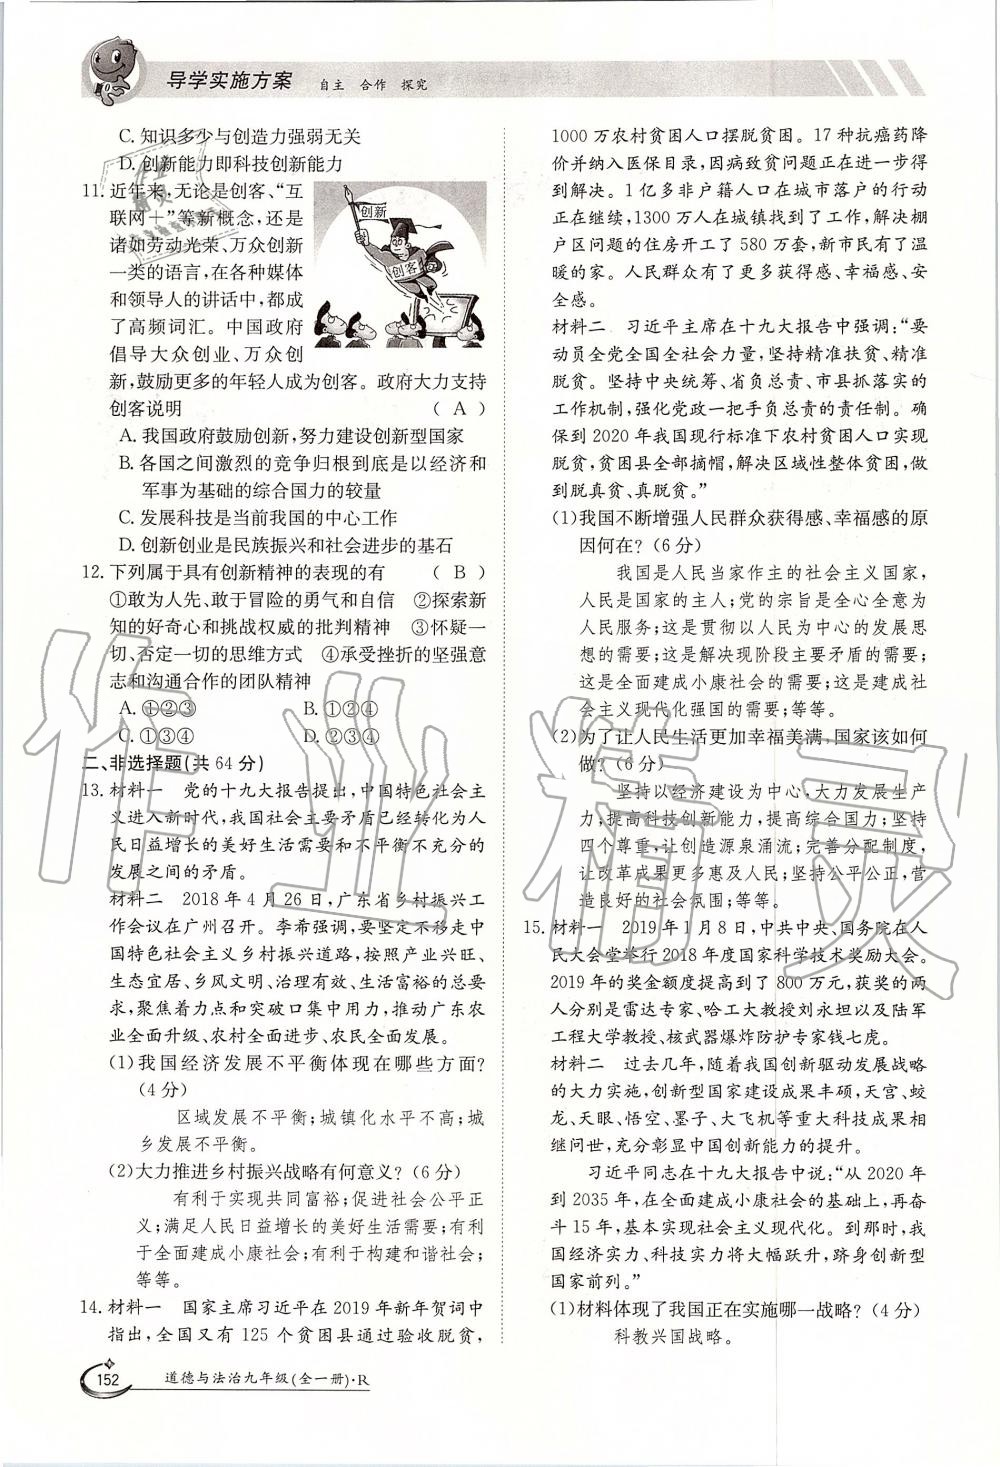 导学实施方案 自主 合作 探究
C. 知识多少与创造力强弱无关
D. 创新能力即科技创新能力
11. 近年来,无论是创客、“互
联网＋”等新概念,还是
诸如劳动光荣、万众创新
一类的语言,在各种媒体
和领导人的讲话中,都成
了高频词汇。中国政府
倡导大众创业、万众创
新,鼓励更多的年轻人成为创客。政府大力支持
创客说明 ( A )
创新
创客
A. 我国政府鼓励创新,努力建设创新型国家
B. 各国之间激烈的竞争归根到底是以经济和
军事为基础的综合国力的较量
C. 发展科技是当前我国的中心工作
D. 创新创业是民族振兴和社会进步的基石
12. 下列属于具有创新精神的表现的有 ( B )
①敢为人先、敢于冒险的勇气和自信 ②探索新
知的好奇心和挑战权威的批判精神 ③怀疑一
切、否定一切的思维方式 ④承受挫折的坚强意
志和沟通合作的团队精神
A. ①②③ B. ①②④
C. ①③④ D. ②③④
二、非选择题(共 64 分)
13. 材料一 党的十九大报告提出,中国特色社会主
义进入新时代,我国社会主要矛盾已经转化为人
民日益增长的美好生活需要和不平衡不充分的
发展之间的矛盾。
材料二 2018 年 4 月 26 日,广东省乡村振兴工
作会议在广州召开。李希强调,要坚定不移走中
国特色社会主义乡村振兴道路,按照产业兴旺、
生态宜居、乡风文明、治理有效、生活富裕的总要
求,聚焦着力点和突破口集中用力,推动广东农
业全面升级、农村全面进步、农民全面发展。
(1)我国经济发展不平衡体现在哪些方面?
(4 分)
区域发展不平衡;城镇化水平不高;城
乡发展不平衡。
(2)大力推进乡村振兴战略有何意义? (6 分)
有利于实现共同富裕;促进社会公平正
义;满足人民日益增长的美好生活需要;有利
于全面建成小康社会;有利于构建和谐社会;
等等。
14. 材料一 国家主席习近平在 2019 年新年贺词中
指出,全国又有 125 个贫困县通过验收脱贫,
1000 万农村贫困人口摆脱贫困。17 种抗癌药降
价并纳入医保目录,因病致贫问题正在进一步得
到解决。1 亿多非户籍人口在城市落户的行动
正在继续,1300 万人在城镇找到了工作,解决棚
户区问题的住房开工了 580 万套,新市民有了温
暖的家。人民群众有了更多获得感、幸福感、安
全感。
材料二 习近平主席在十九大报告中强调:“要
动员全党全国全社会力量,坚持精准扶贫、精准
脱贫。坚持中央统筹、省负总责、市县抓落实的
工作机制,强化党政一把手负总责的责任制。确
保到 2020 年我国现行标准下农村贫困人口实现
脱贫,贫困县全部摘帽,解决区域性整体贫困,做
到脱真贫、真脱贫。”
(1)我国不断增强人民群众获得感、幸福感的原
因何在? (6 分)
我国是人民当家作主的社会主义国家,
人民是国家的主人;党的宗旨是全心全意为
人民服务;这是贯彻以人民为中心的发展思
想的需要;这是解决现阶段主要矛盾的需要;
这是全面建成小康社会的需要;这是建成社
会主义现代化强国的需要;等等。
(2)为了让人民生活更加幸福美满,国家该如何
做? (6 分)
坚持以经济建设为中心,大力发展生产
力,提高科技创新能力,提高综合国力;坚持
四个尊重,让创造源泉涌流;完善分配制度,
让改革成果更多惠及人民;坚持公平公正,营
造良好的社会氛围;等等。
15. 材料一 2019 年 1 月 8 日,中共中央、国务院在人
民大会堂举行 2018 年度国家科学技术奖励大会。
2019 年的奖金额度提高到了 800 万元,获奖的两
人分别是雷达专家、哈工大教授刘永坦以及陆军
工程大学教授、核武器爆炸防护专家钱七虎。
材料二 过去几年,随着我国创新驱动发展战略
的大力实施,创新型国家建设成果丰硕,天宫、蛟
龙、天眼、悟空、墨子、大飞机等重大科技成果相
继问世,充分彰显中国创新能力的提升。
习近平同志在十九大报告中说:“从 2020 年
到 2035 年,在全面建成小康社会的基础上,再奋
斗 15 年,基本实现社会主义现代化。到那时,我
国经济实力、科技实力将大幅跃升,跻身创新型
国家前列。”
(1)材料体现了我国正在实施哪一战略? (4 分)
科教兴国战略。
152 道德与法治九年级(全一册)·R
作业精灵